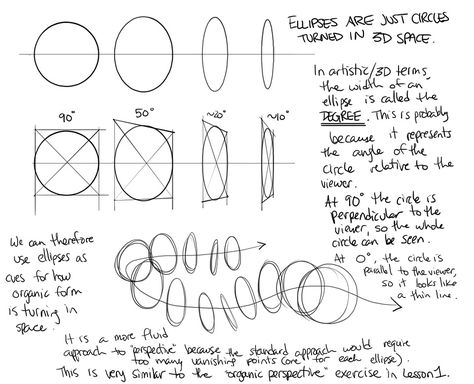 ELLIPSES ARE JUST CIRCLES
TURNED IN 3D SPACE.
In artistic/3D terms,
the width of an
ellipse is called the
DEGREE. This is probably
because it represents
the angle of the
circle relative to the
viewer.
At 90° the circle is
perpendicular to the
viewer, so the whole
circle can be seen.
At 0°, the circle is
parallel to the viewer,
so it looks like
a thin line.
90°
50°
~20°
~10°
We can therefore
use ellipses as
cues for how
organic form
is turning in
space.
It is a more fluid
approach to "perspective" because the standard approach would require
too many vanishing points (one for each ellipse).
This is very similar to the "organic perspective" exercise in Lesson 1.